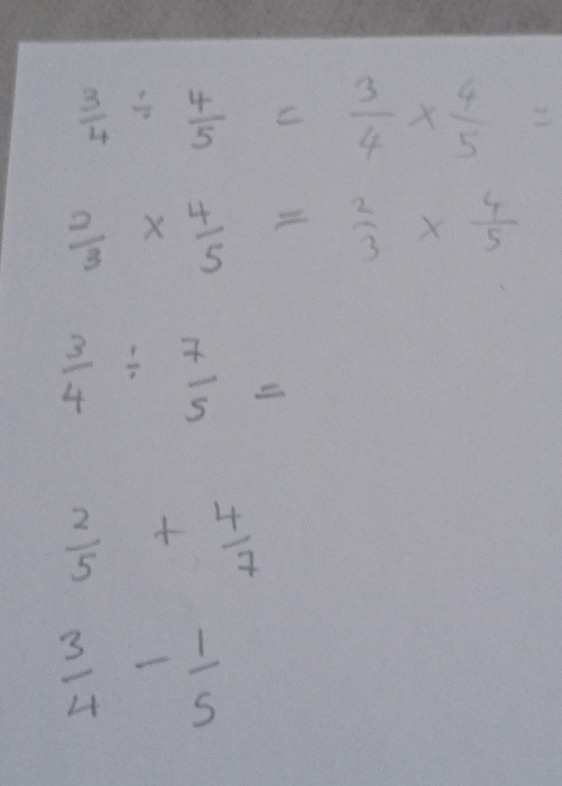 3/4 ÷ 4/5 = 3/4 × 4/5 =
2/3 × 4/5 = 2/3 × 4/5
3/4 ÷ 7/5 =
2/5 + 4/7
3/4 - 1/5